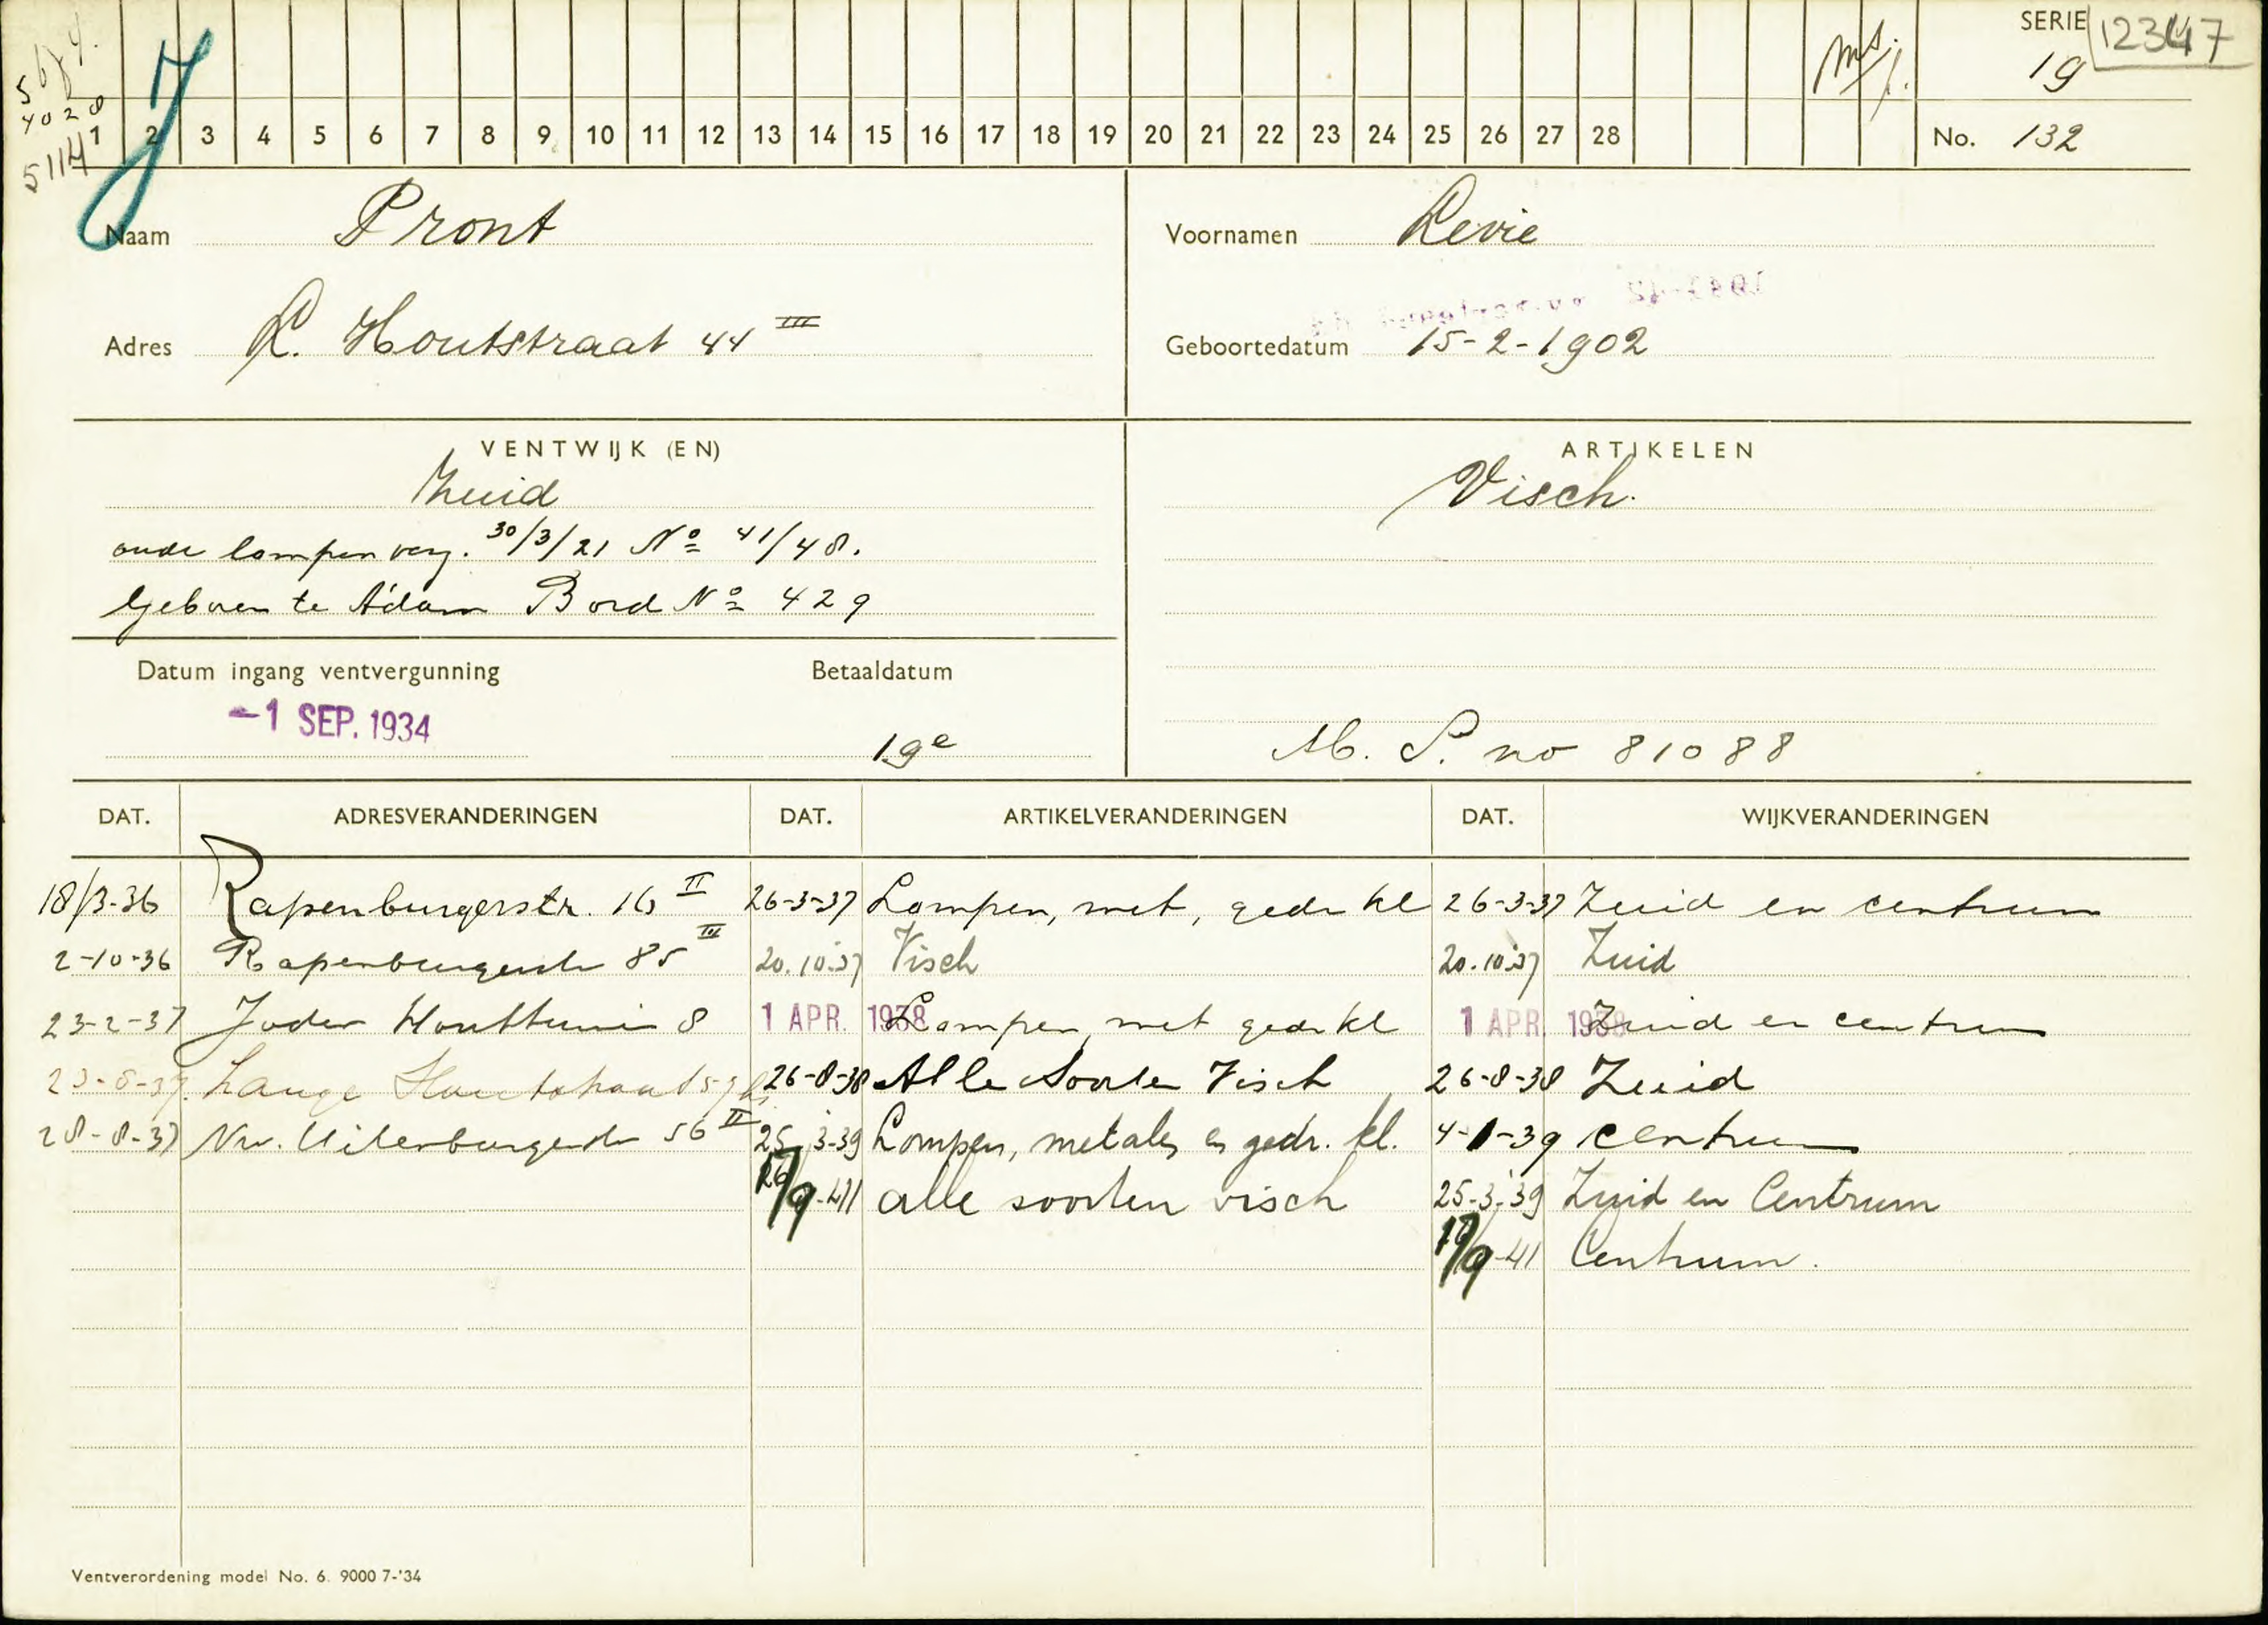 SERIE 12347
19
4028
1 2 3 4 5 6 7 8 9 10 11 12 13 14 15 16 17 18 19 20 21 22 23 24 25 26 27 28
No. 132
5114
J
Naam Pront
Voornamen Levie
Adres L. Houtstraat 44 III
Geboortedatum 15-2-1902
VENTWIJK (EN)
Zuid
oude lompen verg. 30/3/21 No 41/48.
Geboren te A'dam Bord No 429
ARTIKELEN
Visch.
Datum ingang ventvergunning
-1 SEP. 1934
Betaaldatum
19e
M. P. no 81088
DAT. ADRESVERANDERINGEN DAT. ARTIKELVERANDERINGEN DAT. WIJKVERANDERINGEN
18/3-36 Rapenburgerstr. 16 II 26-3-37 Lompen, met, gedr kl 26-3-37 Zuid en centrum
2-10-36 Rapenburgerstr 85 III 20.10.37 Visch 20.10.37 Zuid
23-2-37 Joden Houttuin 8 1 APR. 1938 Lompen, met gedr kl 1 APR. 1938 Zuid en centrum
Lange Houtstraat 26-8-38 Alle Soorten Visch 26-8-38 Zuid
28-8-37 Nw. Uilenburgerstr 56 II 25-3-39 Lompen, metalen en gedr. kl. 4-1-39 Centrum
/9-41 alle soorten visch 25-3-'39 Zuid en Centrum
/9-41 Centrum.
Ventverordening model No. 6. 9000 7-'34